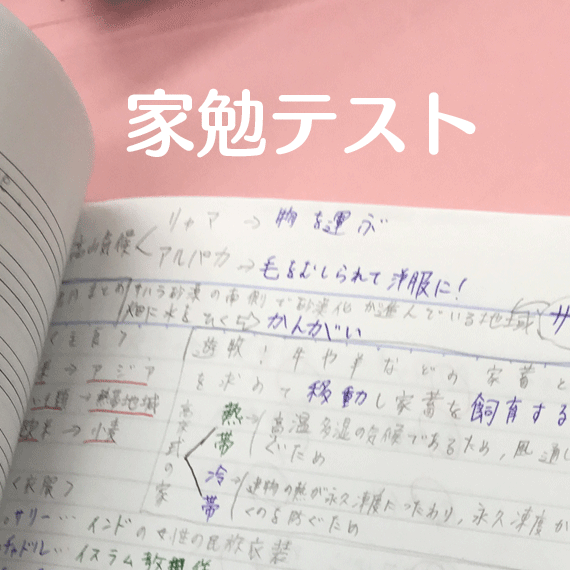 家勉テスト
リャマ → 物を運ぶ
高山気候
アルパカ → 毛をむしられて洋服に!
サハラ砂漠の南側で砂漠化が進んでいる地域 サ
畑に水をひくこと かんがい
<主食>
→ アジア
遊牧! 牛や羊などの家畜と
いも類 → 熱帯地域
を求めて移動し家畜を飼育する
欧米 → 小麦
高床式の家
熱帯 → 高温多湿の気候であるため、風通し
ぐため
冷帯 → 建物の熱が永久凍土につたわり、永久凍土が
くのを防ぐため
<衣服>
サリー… インドの女性の民族衣装
チャドル… イスラム教